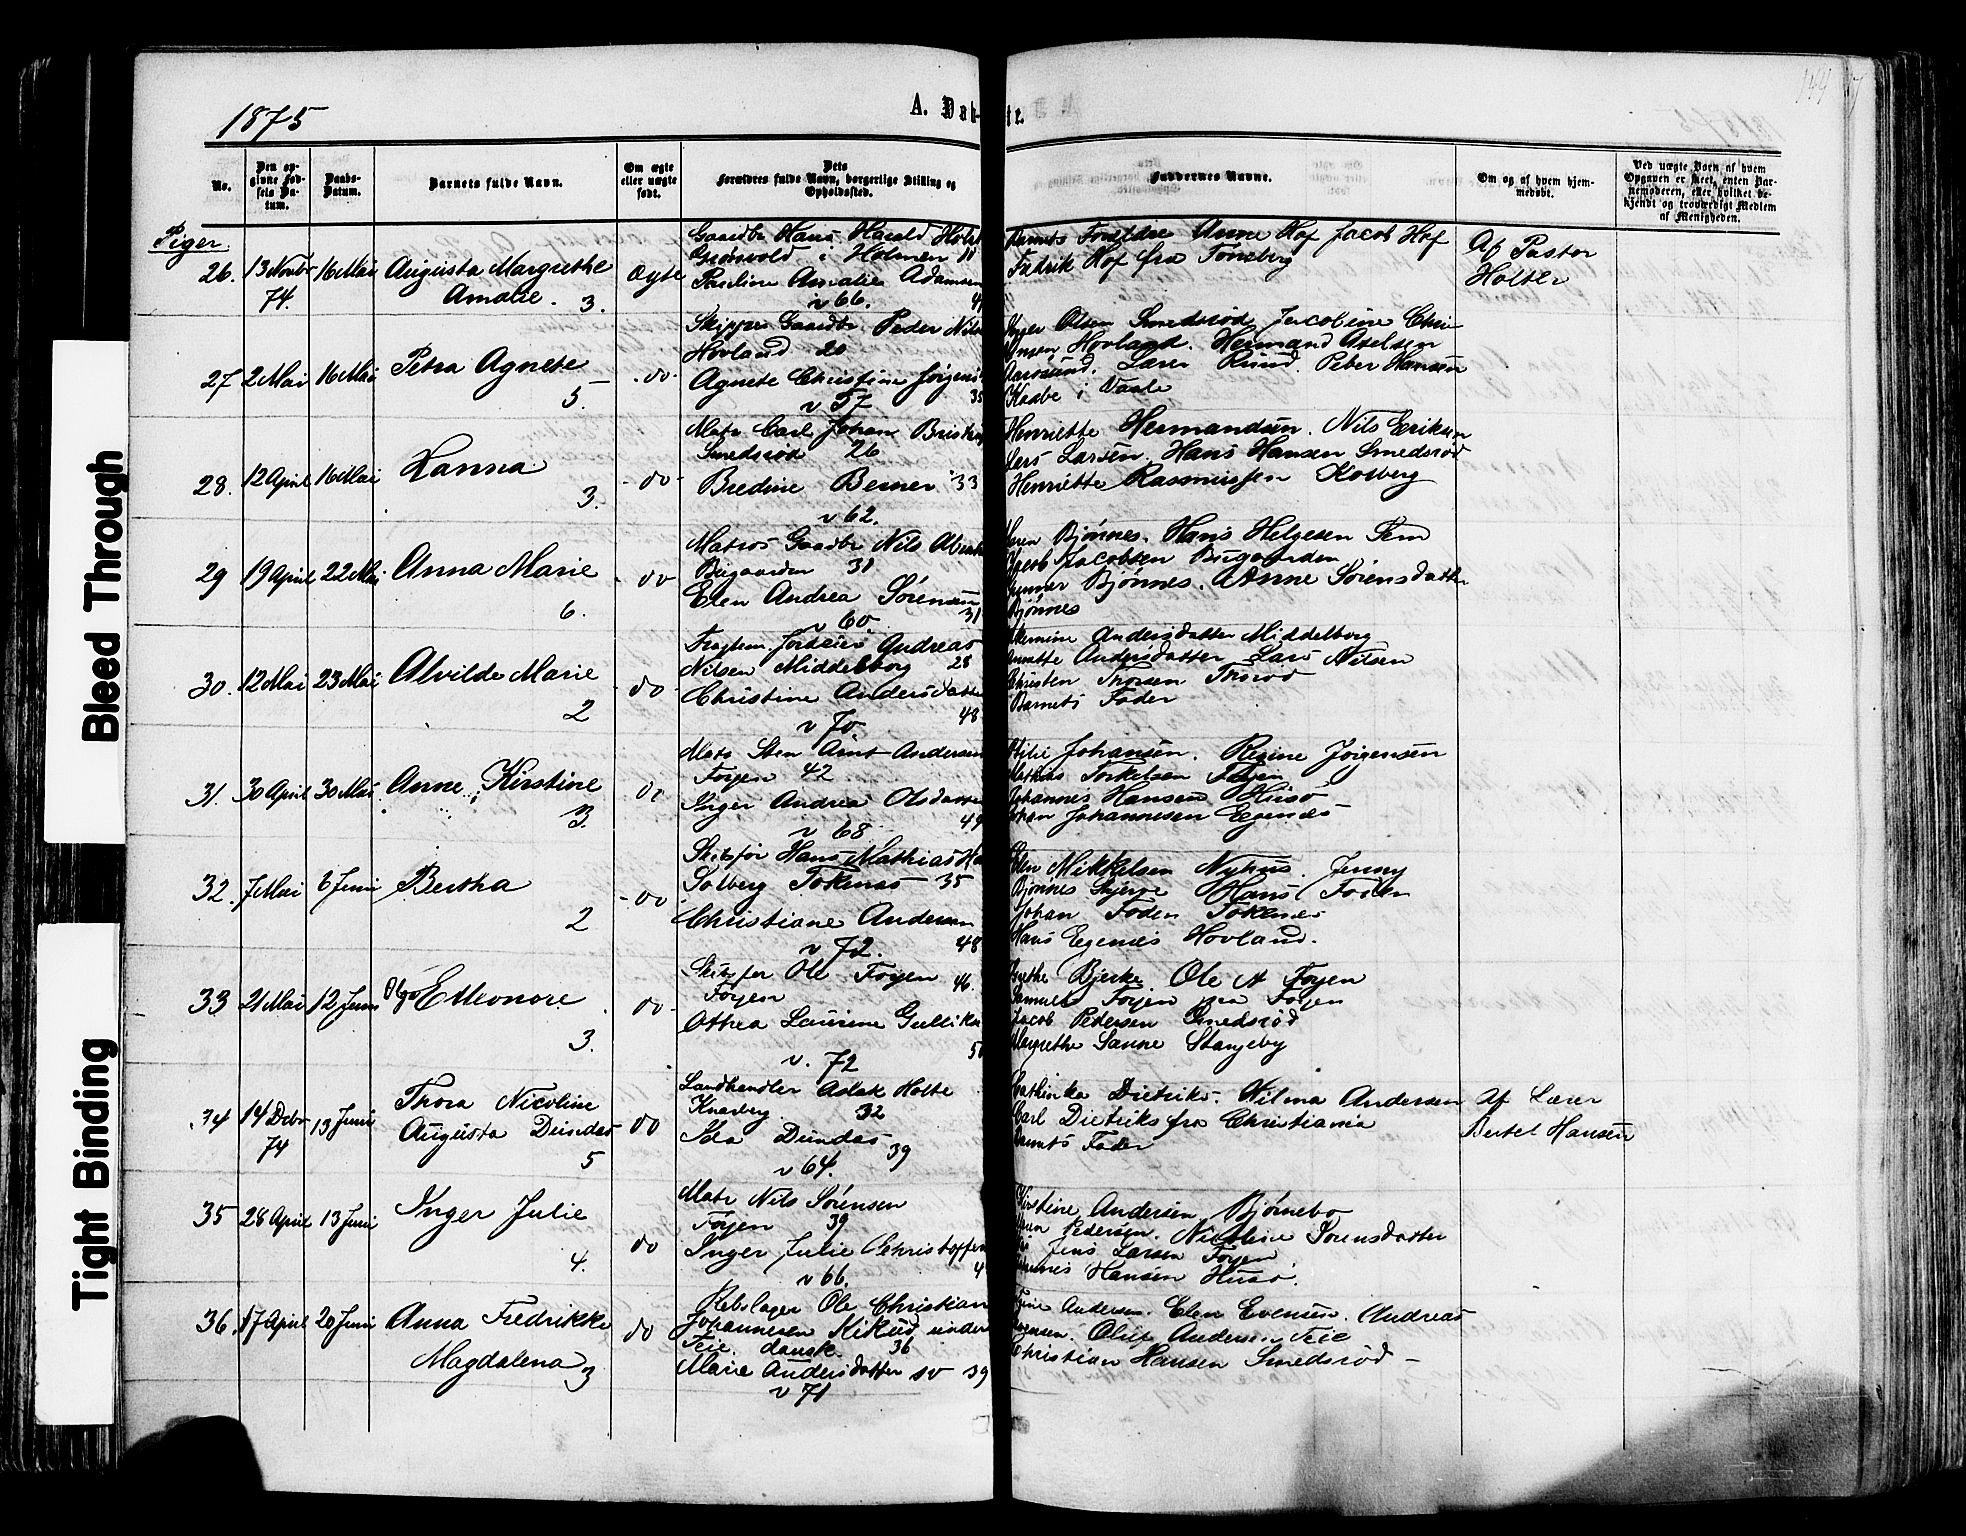 Bleed Through
Tight Binding
1875
A. Døb-
te.
144
No.
Den op-
givne Fød-
sels Da-
tum.
Daabs-
Datum.
Barnets fulde Navn.
Om ægte
eller uægte
født.
Dets
Forældres fulde Navn, borgerlige Stilling og
Opholdssted.
Faddernes Navne.
Om og af hvem hjem-
medøbt.
Ved uægte Børn af hvem
Opgaven er skeet, enten Bar-
nemoderen, eller hvilket be-
kjendt og troværdigt Medlem
af Menigheden.
Piger
26. 13 Novbr 74. 16 Mai
Augusta Margrethe
Amalie. 3.
Ægte
Gaardbr Hans Harald Holst
Grønvold i Holmen
Pauline Amalie Adamsen
v 66.
Barnets Forældre Anne Hof Jacob Hof
Fredrik Hof fra Tønsberg
Af Pastor
Holter
27 2 Mai 16 Mai
Petra Agnete
5.
do
Skipper Gaardbr. Peder Nils
Hovland 20
Agnete Christine Jørgens
35
v 57
Inger Olsen Smedsrød Jacobine Chri-
Hovland. Hermand Axelsen
Aarøsund. Laver Ruud. Peter Hansen
Kaabe i Vaale
28. 12 April 16 Mai
Hanna
3.
do
Matr Carl Johan
Smedsrød 26
Bredine Berner 33
v 62.
Henriette Hermandsen. Nils Eriksen
Lars Larsen. Hans Hansen Smedsrød
Henriette Rasmussen Kolberg
29 19 April 22 Mai
Anna Marie
6.
do
Matros Gaardbr Nils
Bugaarden 31
Elen Andrea Sørensen
31
v 60
Maren Bjønnes. Hans Helgesen Fem
Jacob Jacobsen Bugaarden
Gunner Bjønnes. Anne Sørensdatter
Bjønnes
30. 12 Mai 23 Mai
Alvilde Marie
2
do
Andreas
Nilsen Middelborg 28
Christine Andersdatter
48
v 70.
Andersdatter Middelborg
Annette Andersdatter Lars Nilsen
Christen Thorsen Thorød
Barnets Fader
31. 30 April 30 Mai
Anne Kirstine
3.
do
Matr Sten Arnt Andersen
Foyen 42
Inger Andrea Olsdatter
49
v 68
Johansen. Regine Jørgensen
Mathias Torkelsen Foyen
Johannes Hansen Husø
Johan Johannesen Egenes
32. 7 Mai 6 Juni
Bertha
2
do
Skibsfør Hans Mathias
Solberg Tokenæs 35
Christiane Andersen
48
v 72.
Elen Mikkelsen Nyhus. Jenny
Bjønnes Skjerve Hans Foden
Johan Foden Tokenes
Hans Egenes Hovland.
33 21 Mai 12 Juni
Olga Elleonore
3.
do
Skibsfør Ole Foyen 46
Foyen
Othea Laurine Gulliks
v. 72
Grethe Bjerke. Ole A Foyen
Samuel Foyen paa Foyen
Jacob Pedersen Smedsrød
Margrethe Sanne Stangeby
34 14 Decbr 74 13 Juni
Thora Nicoline
Augusta Dundas
5
do
Landhandler Aslak Holte
Knarberg 32
Ida Dundas
39
v 64.
Cathinka Dietriks. Wilma Andersen
Carl Dietriks fra Christiania
Barnets Fader
Af Lærer
Bertel Hansen
35 28 April 13 Juni
Inger Julie
4.
do
Matr Nils Sørensen
Foyen 39
Inger Julie Christoffersen
v 66.
Kirstine Andersen Bjørnebo
Pedersen. Nicoline Sørensdatter
Jens Larsen Foyen
Johannes Hansen Husø
36. 17 April 20 Juni
Anna Fredrikke
Magdalena 3
do
Rebslager Ole Christian
Johannesen Kikud under
Teie. dansk. 36
Marie Andersdatter sv 39
v 71
Andersen. Elen Evensen. Andreas
Oluf Andersen Teie
Christian Hansen Smedsrød